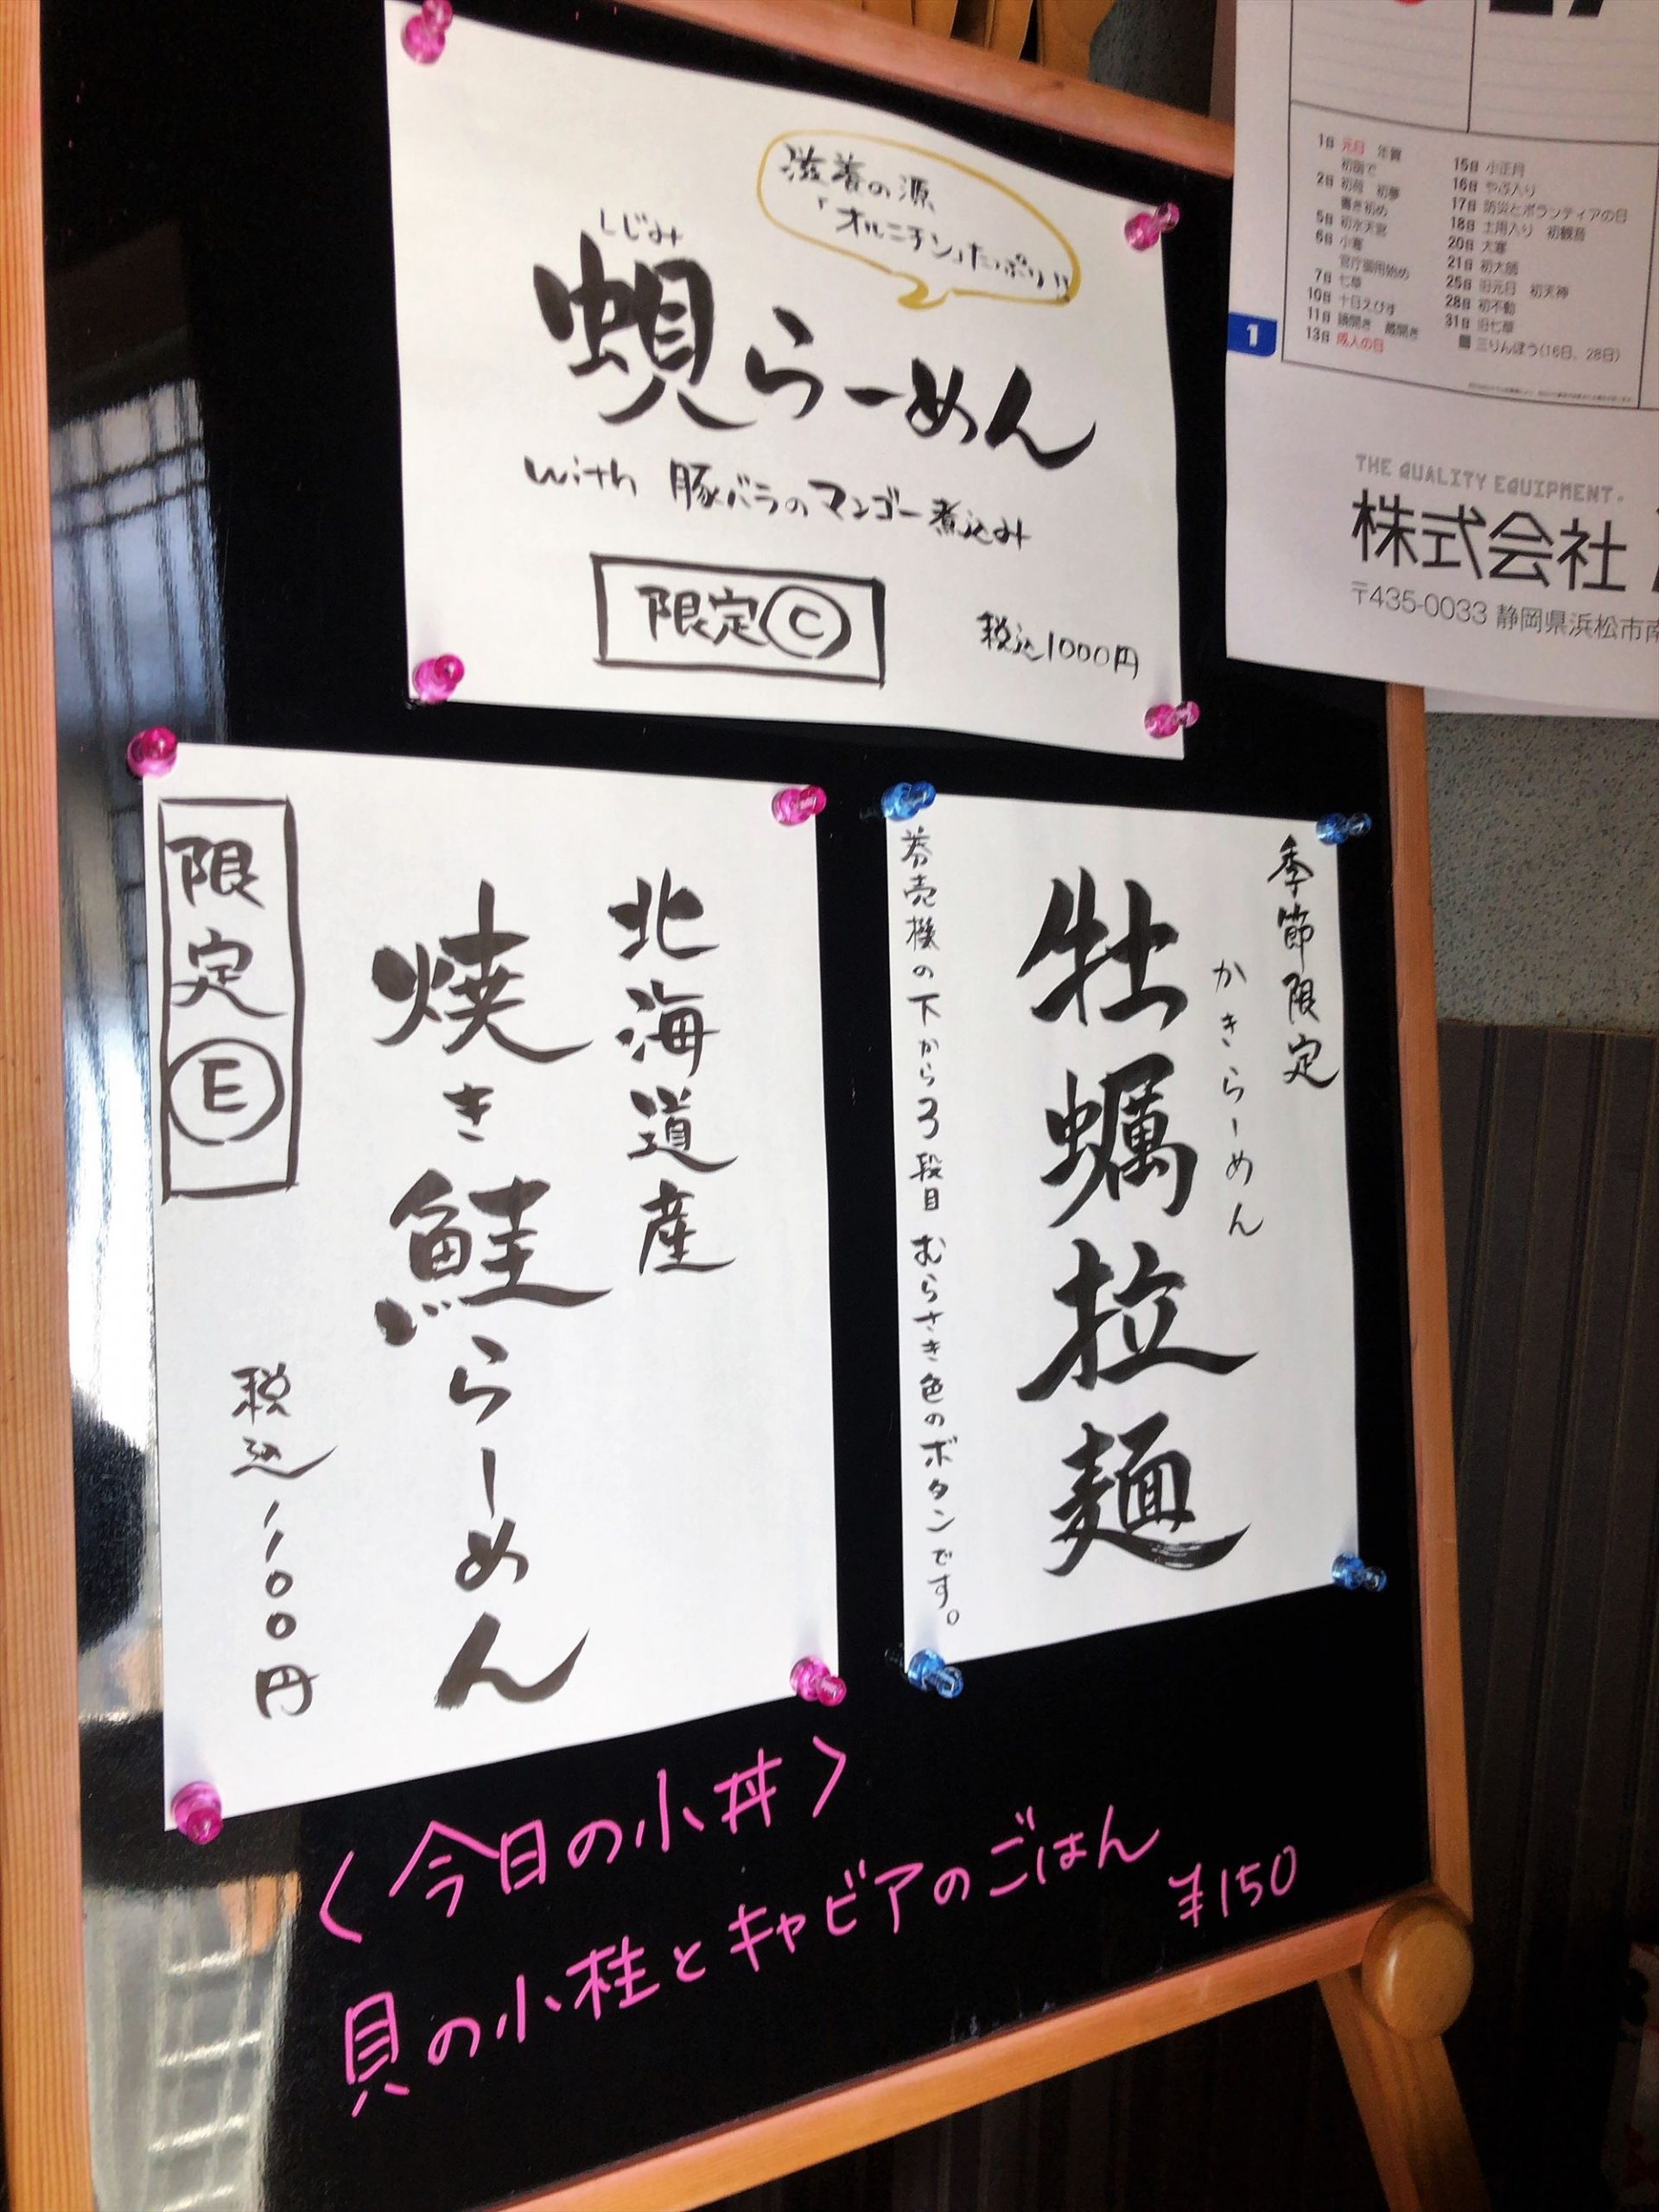 滋養の源
「オルニチン」たっぷり!!
しじみ
蜆らーめん
with 豚バラのマンゴー煮込み
限定Ⓒ
税込1000円
北海道産
焼き鮭らーめん
限定Ⓔ
税込1100円
季節限定
かきらーめん
牡蠣拉麺
券売機の下から3段目 むらさき色のボタンです。
〈今日の小丼〉
貝の小柱とキャビアのごはん
¥150
1日 元日 年賀
初詣で
2日 初荷 初夢
書き初め
5日 初水天宮
6日 小寒
官庁御用始め
7日 七草
10日 十日えびす
11日 鏡開き 蔵開き
13日 成人の日
15日 小正月
16日 やぶ入り
17日 防災とボランティアの日
18日 土用入り 初観音
20日 大寒
21日 初大師
25日 旧元日 初天神
28日 初不動
31日 旧七草
三りんぼう(16日、28日)
1
THE QUALITY EQUIPMENT.
株式会社
〒435-0033 静岡県浜松市南